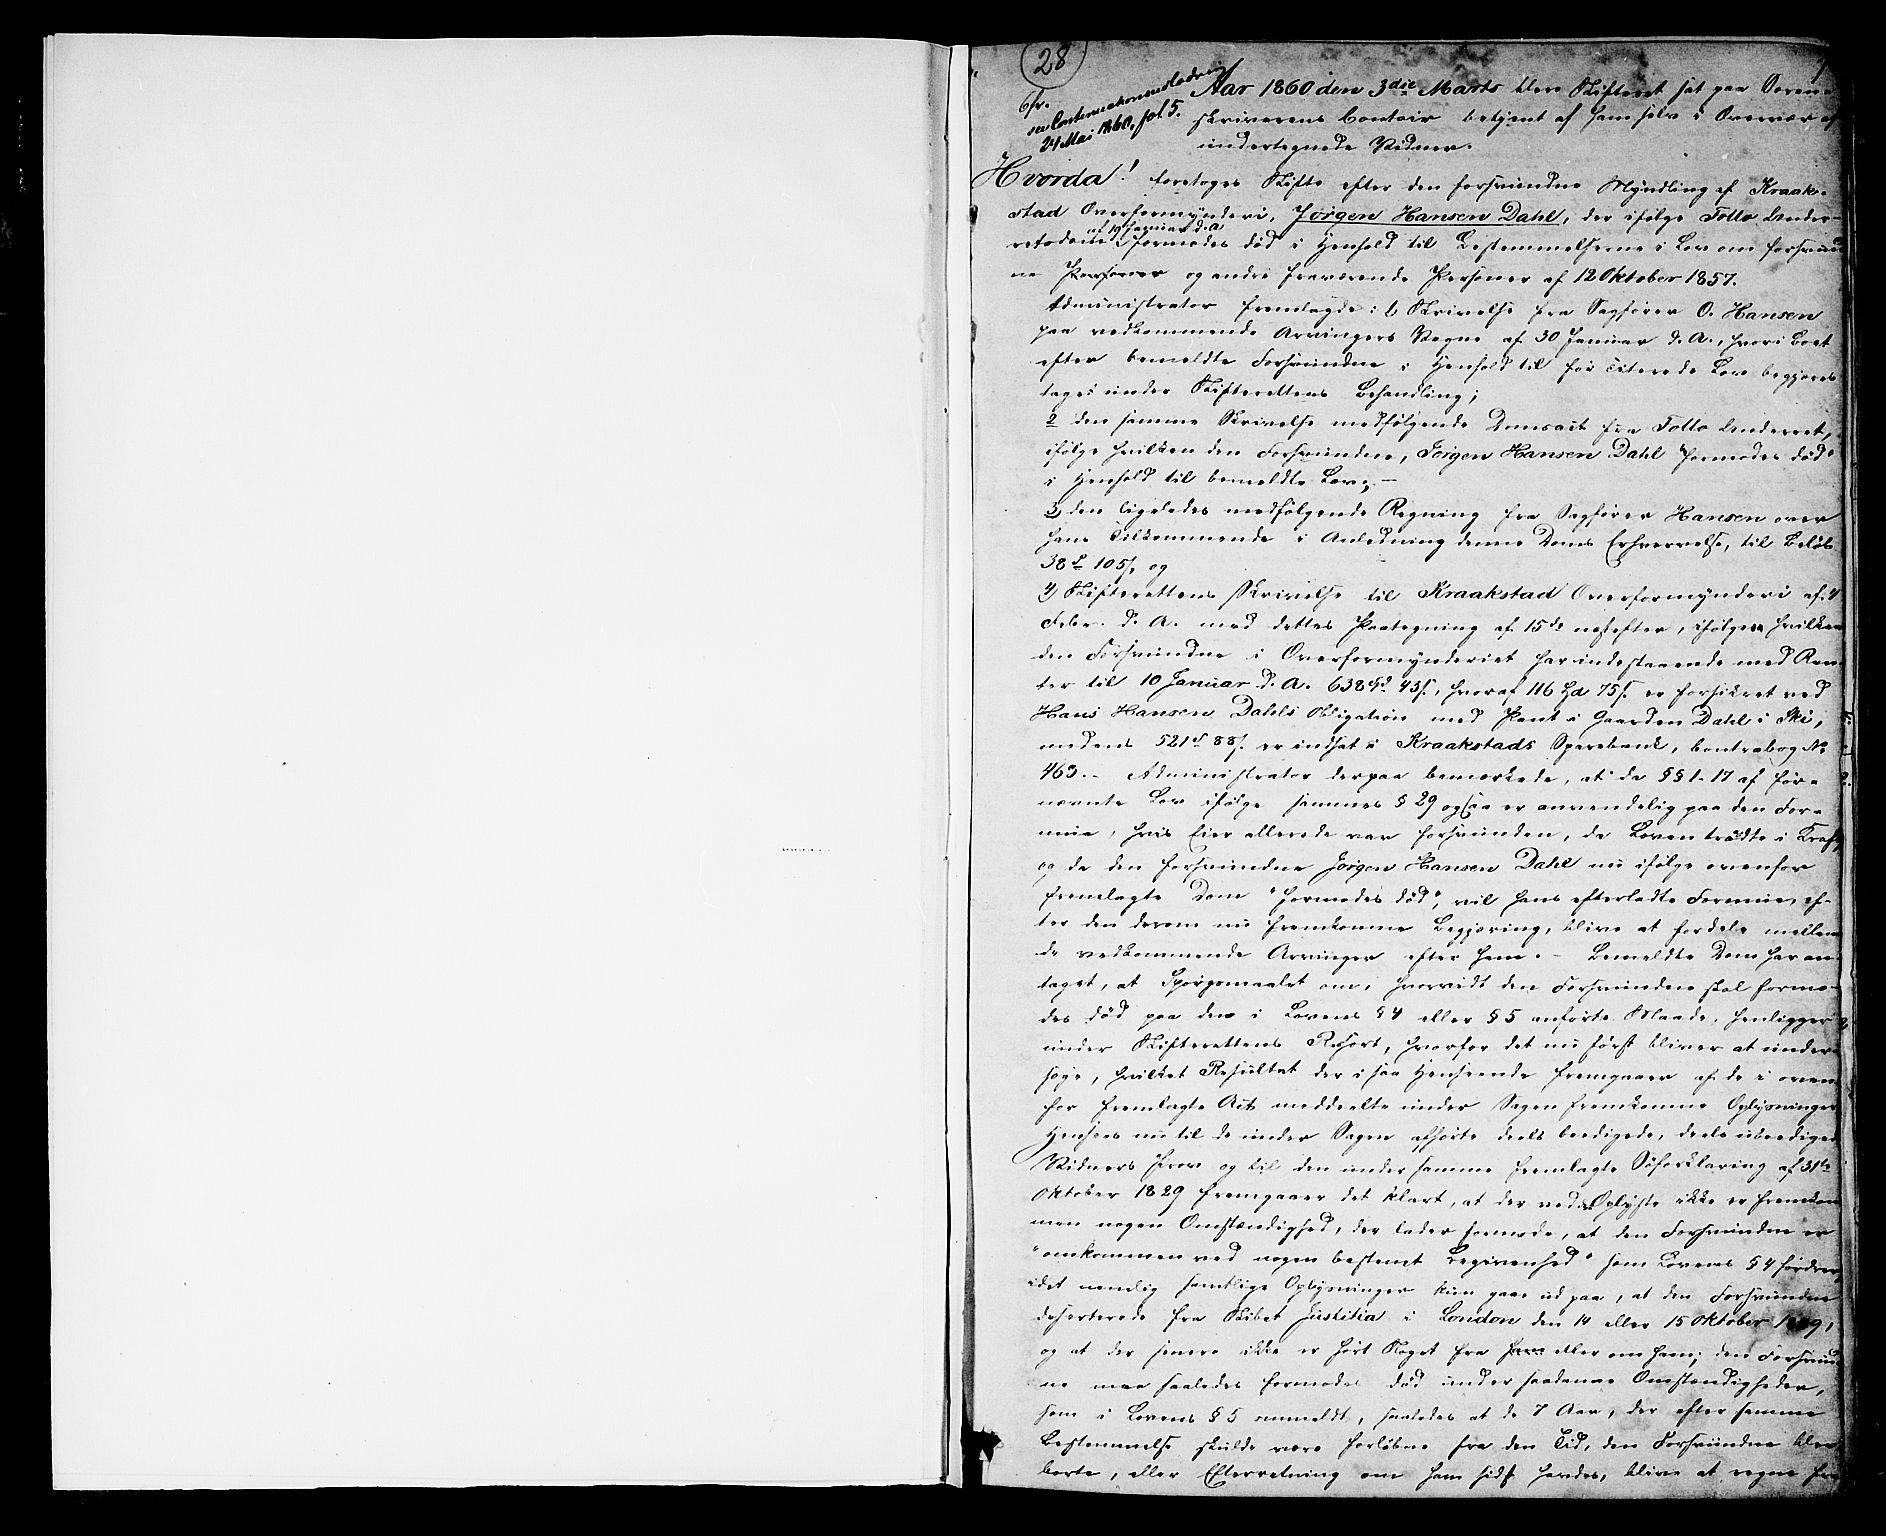 28
1
Cfr.
en Continuationsudlodning
24 Mai 1860, fol 5.
Aar 1860 den 3die Marts blev Skifteret sat paa Soren-
skriverens Contoir betjent af ham selv i Overvær af
undertegnede Vidner.
Hvorda! foretoges Skifte efter den forsvundne Myndling af Kraak-
stad Overformynderi, Jørgen Hansen Dahl, der ifølge Follo Under-
retsdom af 19 Januar d. A. formodes død i Henhold til Bestemmelserne i Lov om forsvund-
ne Personer og andre fraværende Personer af 12 Oktober 1857.
Administrator fremlagde: 1, Skrivelse fra Sagfører O. Hansen
paa vedkommende Arvingers Vegne af 30 Januar d. A., hvori Boet
efter bemeldte Forsvundne i Henhold til før citerede Lov begjæres
taget under Skifterettens Behandling;
2 den samme Skrivelse medfølgende Domsact fra Follo Underret,
ifølge hvilken den Forsvundne, Jørgen Hansen Dahl formodes død
i Henhold til bemeldte Lov; –
3, den ligeledes medfølgende Regning fra Sagfører Hansen over
hans Tilkommende i Anledning denne Doms Erhvervelse, til Beløb
38 d 105 s, og
4, Skifterettens Skrivelse til Kraakstad Overformynderi af 4
Febr. d. A. med dettes Paategning af 15de næstefter, ifølge hvilken
den Forsvundne i Overformynderiet har indestaaende med Ren-
ter til 10 Januar d. A. 638 Spd 43 s, hvoraf 116 Spd 75 s er forsikret ved
Hans Hansen Dahls Obligation med Pant i Gaarden Dahl i Ski,
medens 521 d 88 s. er indsat i Kraakstads Sparebank, Contrabog No
463. – Administrator derpaa bemærkede, at da §§ 1-17 af før-
nævnte Lov ifølge sammes § 29 ogsaa er anvendelig paa den For-
mue, hvis Eier allerede var forsvunden, da Loven traadte i Kraft,
og da den forsvundne Jørgen Hansen Dahl nu ifølge ovenfor
fremlagte Dom "formodes død", vil hans efterladte Formue, ef-
ter den derom nu fremkomne Begjæring, blive at fordele mellem
de vedkommende Arvinger efter ham. – Bemeldte Dom har an-
taget, at Spørgsmaalet om, hvorvidt den Forsvundne skal formo-
des død paa den i Lovens § 4 eller § 5 anførte Maade, henligger
under Skifterettens Resort, hvorfor det nu først bliver at under-
søge, hvilket Resultat der i saa Henseende fremgaaer af de i oven-
for fremlagte Act meddeelte under Sagen fremkomne Oplysninger
Henses nu til de under Sagen afhørte deels beedigede, deels ubeedigede
Vidners Prov og til den under samme fremlagte Søforklaring af 31te
Oktober 1829 fremgaaer det klart, at der ved det Oplyste ikke er fremkom-
men nogen Omstændighed, der lader formode, at den Forsvundne er
"omkommen ved nogen bestemt Begivenhed" som Lovens § 4 fordrer,
idet nemlig samtlige Oplysninger kun gaae ud paa, at den Forsvundne
deserterede fra Skibet Justitia i London den 14 eller 15 Oktober 1829,
og at der senere ikke er hørt Noget fra ham eller om ham; den Forsvund-
ne maa saaledes formodes død under saadanne Omstændigheder,
som i Lovens § 5 ommeldt, saaledes at de 7 Aar, der efter samme
Bestemmelse skulde være forløbne fra den Tid, den Forsvundne blev
borte, eller Efterretning om ham sidst havdes, blive at regne fra